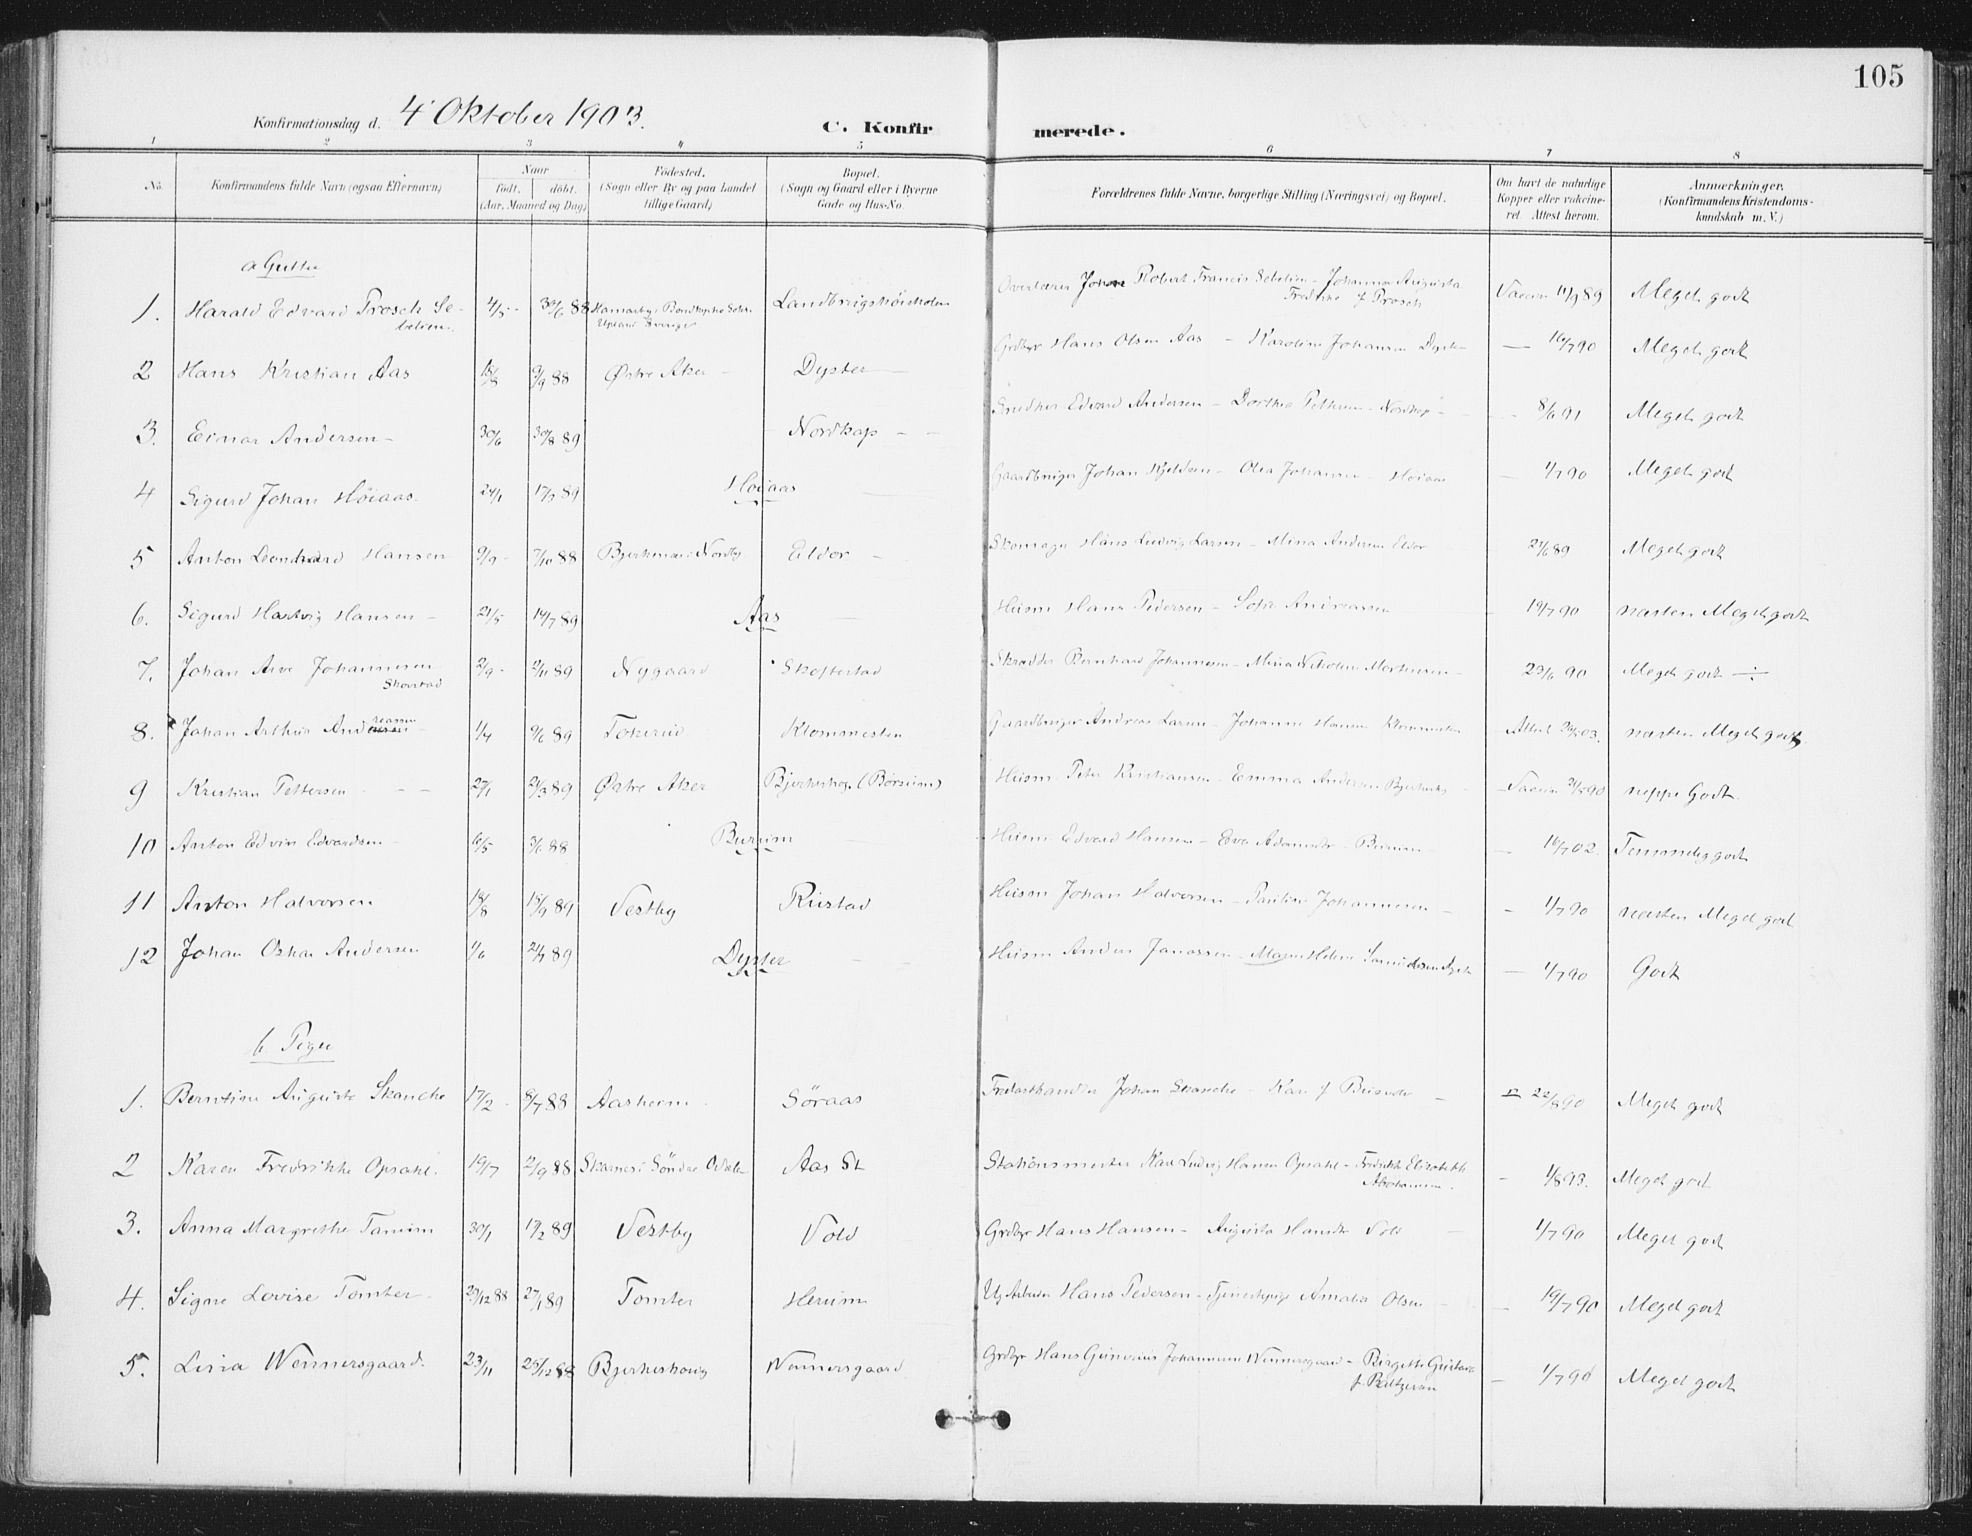 105
Konfirmationsdag d. 4 Oktober 1903.
C. Konfirmerede.
1 2 3 4 5 6 7 8
No. Konfirmandens fulde Navn (ogsaa Efternavn) Naar født. døbt. (Aar, Maaned og Dag) Fødested. (Sogn eller By og paa Landet tillige Gaard) Bopæl. (Sogn og Gaard eller i Byerne Gade og Hus-No Forældrenes fulde Navne, borgerlige Stilling (Næringsvei) og Bopæl. Om havt de naturlige Kopper eller vakcineret. Attest herom. Anmærkninger. (Konfirmandens Kristendomskundskab m. V.)
a Gutter
1. Harald Edvard Prosch Sebelien. 4/5 - 30/6 88 Landbrugshöiskolen Overlærer John Robert Francis Sebelien - Johanna Augusta Fredrike f Prosch Vaccin 11/9 89 Meget godt
2 Hans Kristian Aas 15/8 9/9 88 Østre Aker - Dyster Grdbr Hans Olsen Aas - Karoline Johansen Dyster — 16/7 90 Meget godt
3. Einar Andersen - 30/6 30/8 89 Nordkap - - Snedker Edvard Andersen - Dorthea Pettersen - Nordkap - 8/6 91 Meget godt
4 Sigurd Johan Höiaas. 24/1 17/3 89 Höiaas Gaardbruger Johan Kjeldsen - Olea Johansen - Höiaas — 1/7 90 Meget godt
5 Anton Leonhard Hansen 9/9 - 7/10 88 Bjerkenæs i Nordby Eldor - Skomager Hans Ludvig Larsen - Mina Andersen Eldor 27/6 89 Meget godt
6. Sigurd Hartvig Hansen - 21/5 14/7 89 Aas Husm Hans Pedersen - Sofie Andreassen 19/7 90 næsten Meget godt
7. Johan Arve Johannesen Skovstad 2/9 - 2/11 89 Nygaard Skoftestad Skrædder Bernhard Johannesen - Mina Nicoline Mortensen - 23/6 90 Meget godt ÷
8. Johan Arthur Andreassen - 1/4 9/6 89 Tokerud Klommesten Gaardbruger Andreas Larsen - Johanne Hansen Klommesten Attest 03. næsten Meget godt
9 Kristian Pettersen - - 27/1 24/3 89 Østre Aker Bjerkehog. (Börsum) Husm. Peter Kristiansen - Emma Andersen Bjerkehog - Vaccin 21/5 90 neppe Godt.
10 Anton Edvin Edvardsen - 16/5 3/6 88 Burum Husm Edvard Hansen - Eva Adamsdtr - Burum — 16/7 02. Temmelig godt
11 Anton Halvorsen 18/8 15/9 89 Vestby Rustad Husm Johan Halvorsen - Pauline Johannesen - 1/7 90 næsten Meget godt
12 Johan Oskar Andersen 1/6 21/7 89 Dyster Husm Anders Janassen - Maren Helene Samuelsen Dyster — 1/7 90 Godt
b Piger
1. Berntine Auguste Skancke 17/2 - 8/7 88 Aasheim. Söraas Fredasthandler Johan Skancke - Kari f — 22/8 90 Meget godt
2 Karen Fredrikke Opsahl. 19/7 2/9 88 Skarnes i Söndre Odalen Aas St Stationsmester Karl Ludvig Hansen Opsahl - Fredrikke Elisabeth Abrahamsen. - 1/8 93. Meget godt
3. Anna Margrethe Tanum 30/1 17/2 89 Vestby Vold Grdbr Hans Hansen - Augusta Hansdtr Vold — 1/7 90 Meget godt
4. Signe Lovise Tomter - 29/12 88 27/1 89 Tomter Herum Ug Arbeider Hans Pedersen - Tjenestepige Amalia Olsen — 19/7 90 Meget godt
5. Lina Wennersgaard. 23/11 25/12 88 Bjerkeskoug Wennersgaard Grdbr Hans Gunerius Johannesen Wennersgaard - Birgitte Gustava f. Baltzersen — 1/7 90 Meget godt